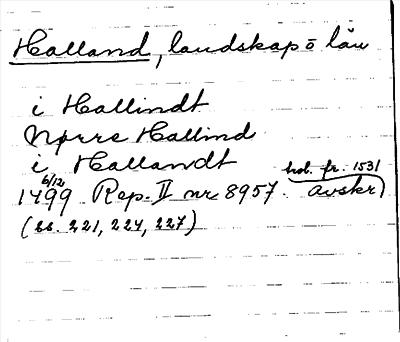 Halland, landskap o län
i Hallindt
Nørre Hallind
i Hallandt
hol. fr. 1531
6/12
1499 Rep. II nr 8957. avskr)
(ss. 221, 224, 227)